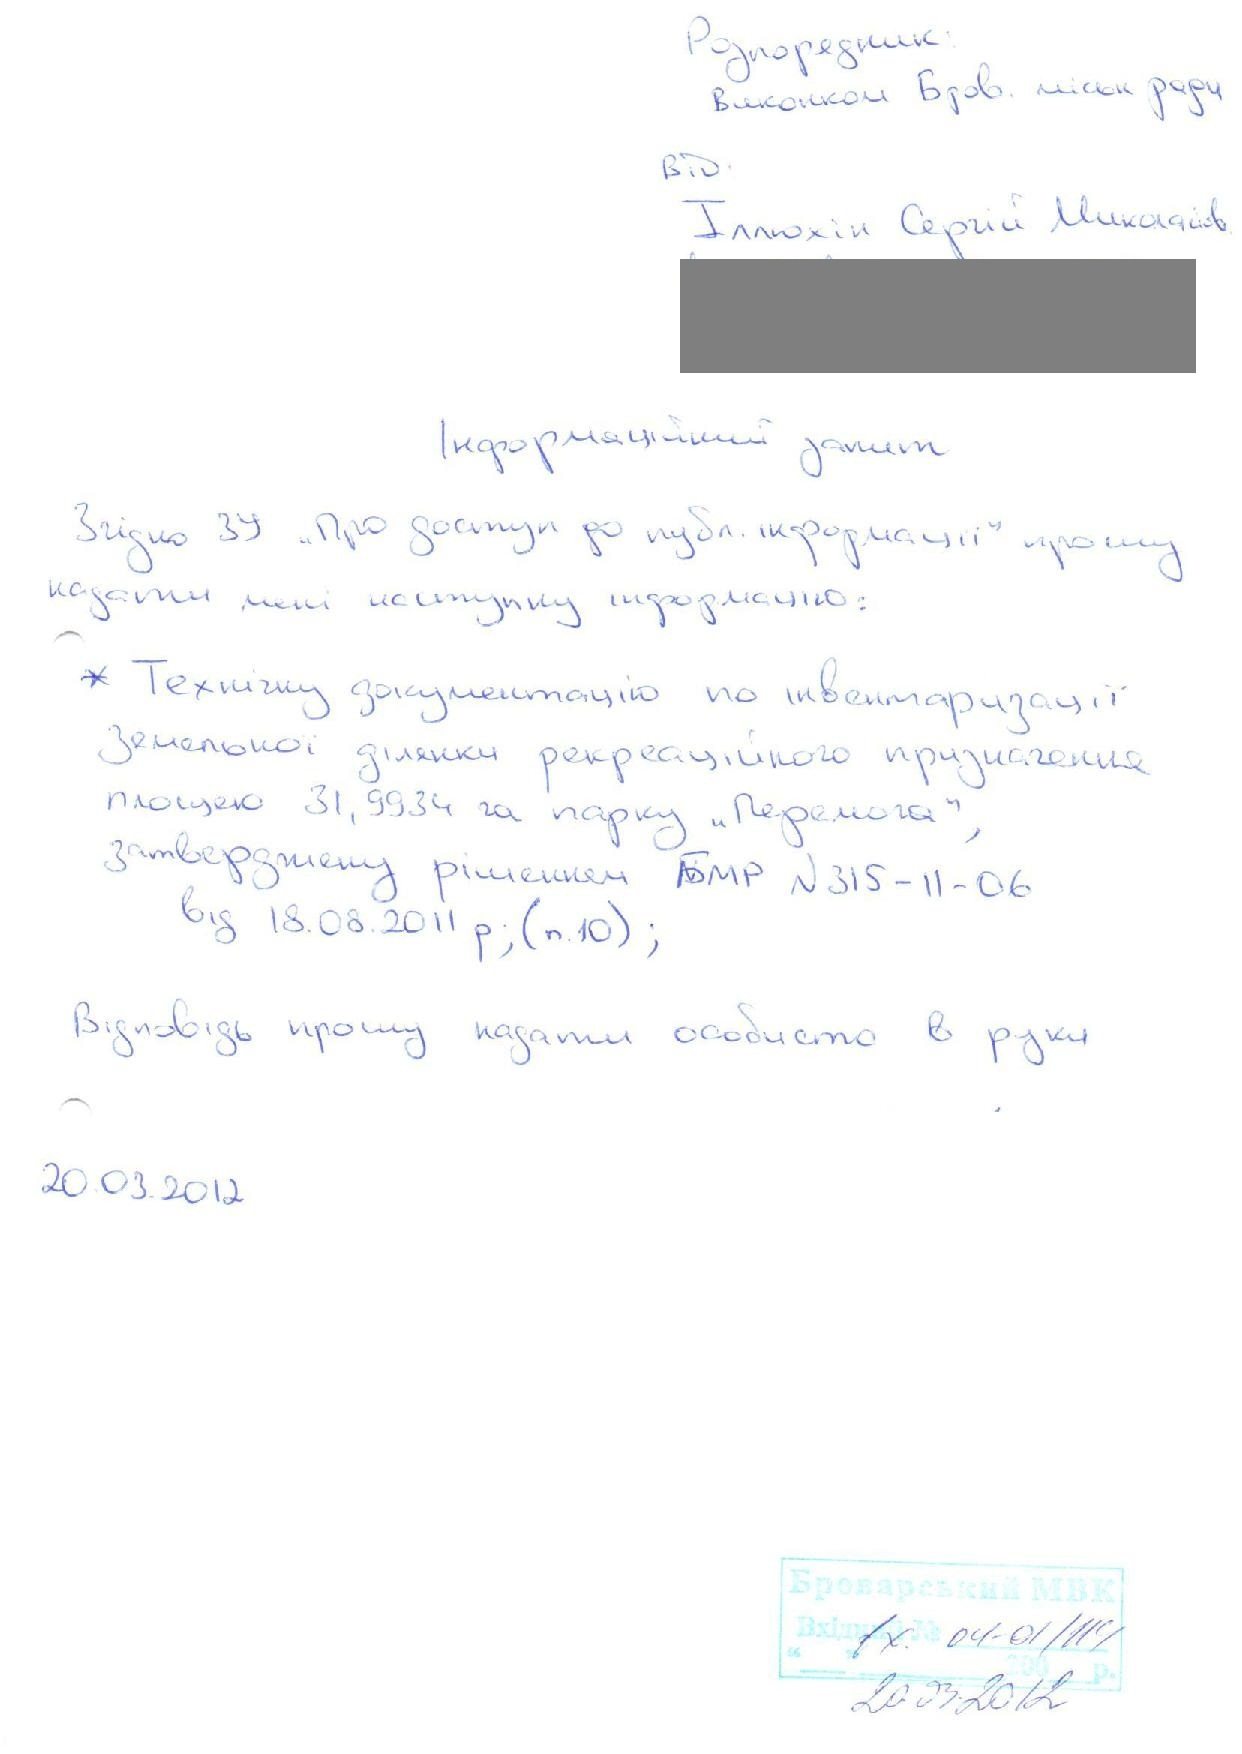 Розпорядник:
Виконком Бров. міськ ради
Від.
Іллюхін Сергій Миколайов.
Інформаційний запит
Згідно ЗУ „Про доступ до публ. інформації" прошу
надати мені наступну інформацію:
* Технічну документацію по інвентаризації
земельної ділянки рекреаційного призначення
площею 31,9934 га парку „Перемога",
затверджену рішенням БМР №315-11-06
від 18.08.2011 р; (п.10);
Відповідь прошу надати особисто в руки
20.03.2012
Броварський МВК
Вхідний № вх. 04-01/119
"___" ________ 200__р.
20.03.2012